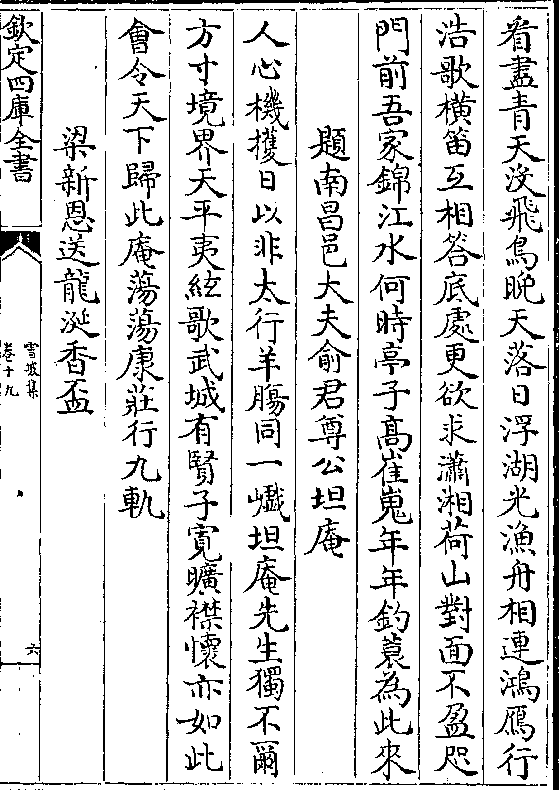 看盡青天没飛鳥晚天落日浮湖光漁舟相連鴻鴈行
浩歌横笛互相答底處更欲求瀟湘荷山對面不盈咫
門前吾家錦江水何時亭子髙崔嵬年年釣蓑為此來
題南昌邑大夫俞君尊公坦庵
人心機擭日以非太行羊膓同一巇坦庵先生獨不爾
方寸境界天平夷絃歌武城有賢子寛曠襟懷亦如此
會令天下歸此庵蕩蕩康莊行九軌
梁新恩送龍涎香盃
欽定四庫全書
雪坡集
卷十九
六